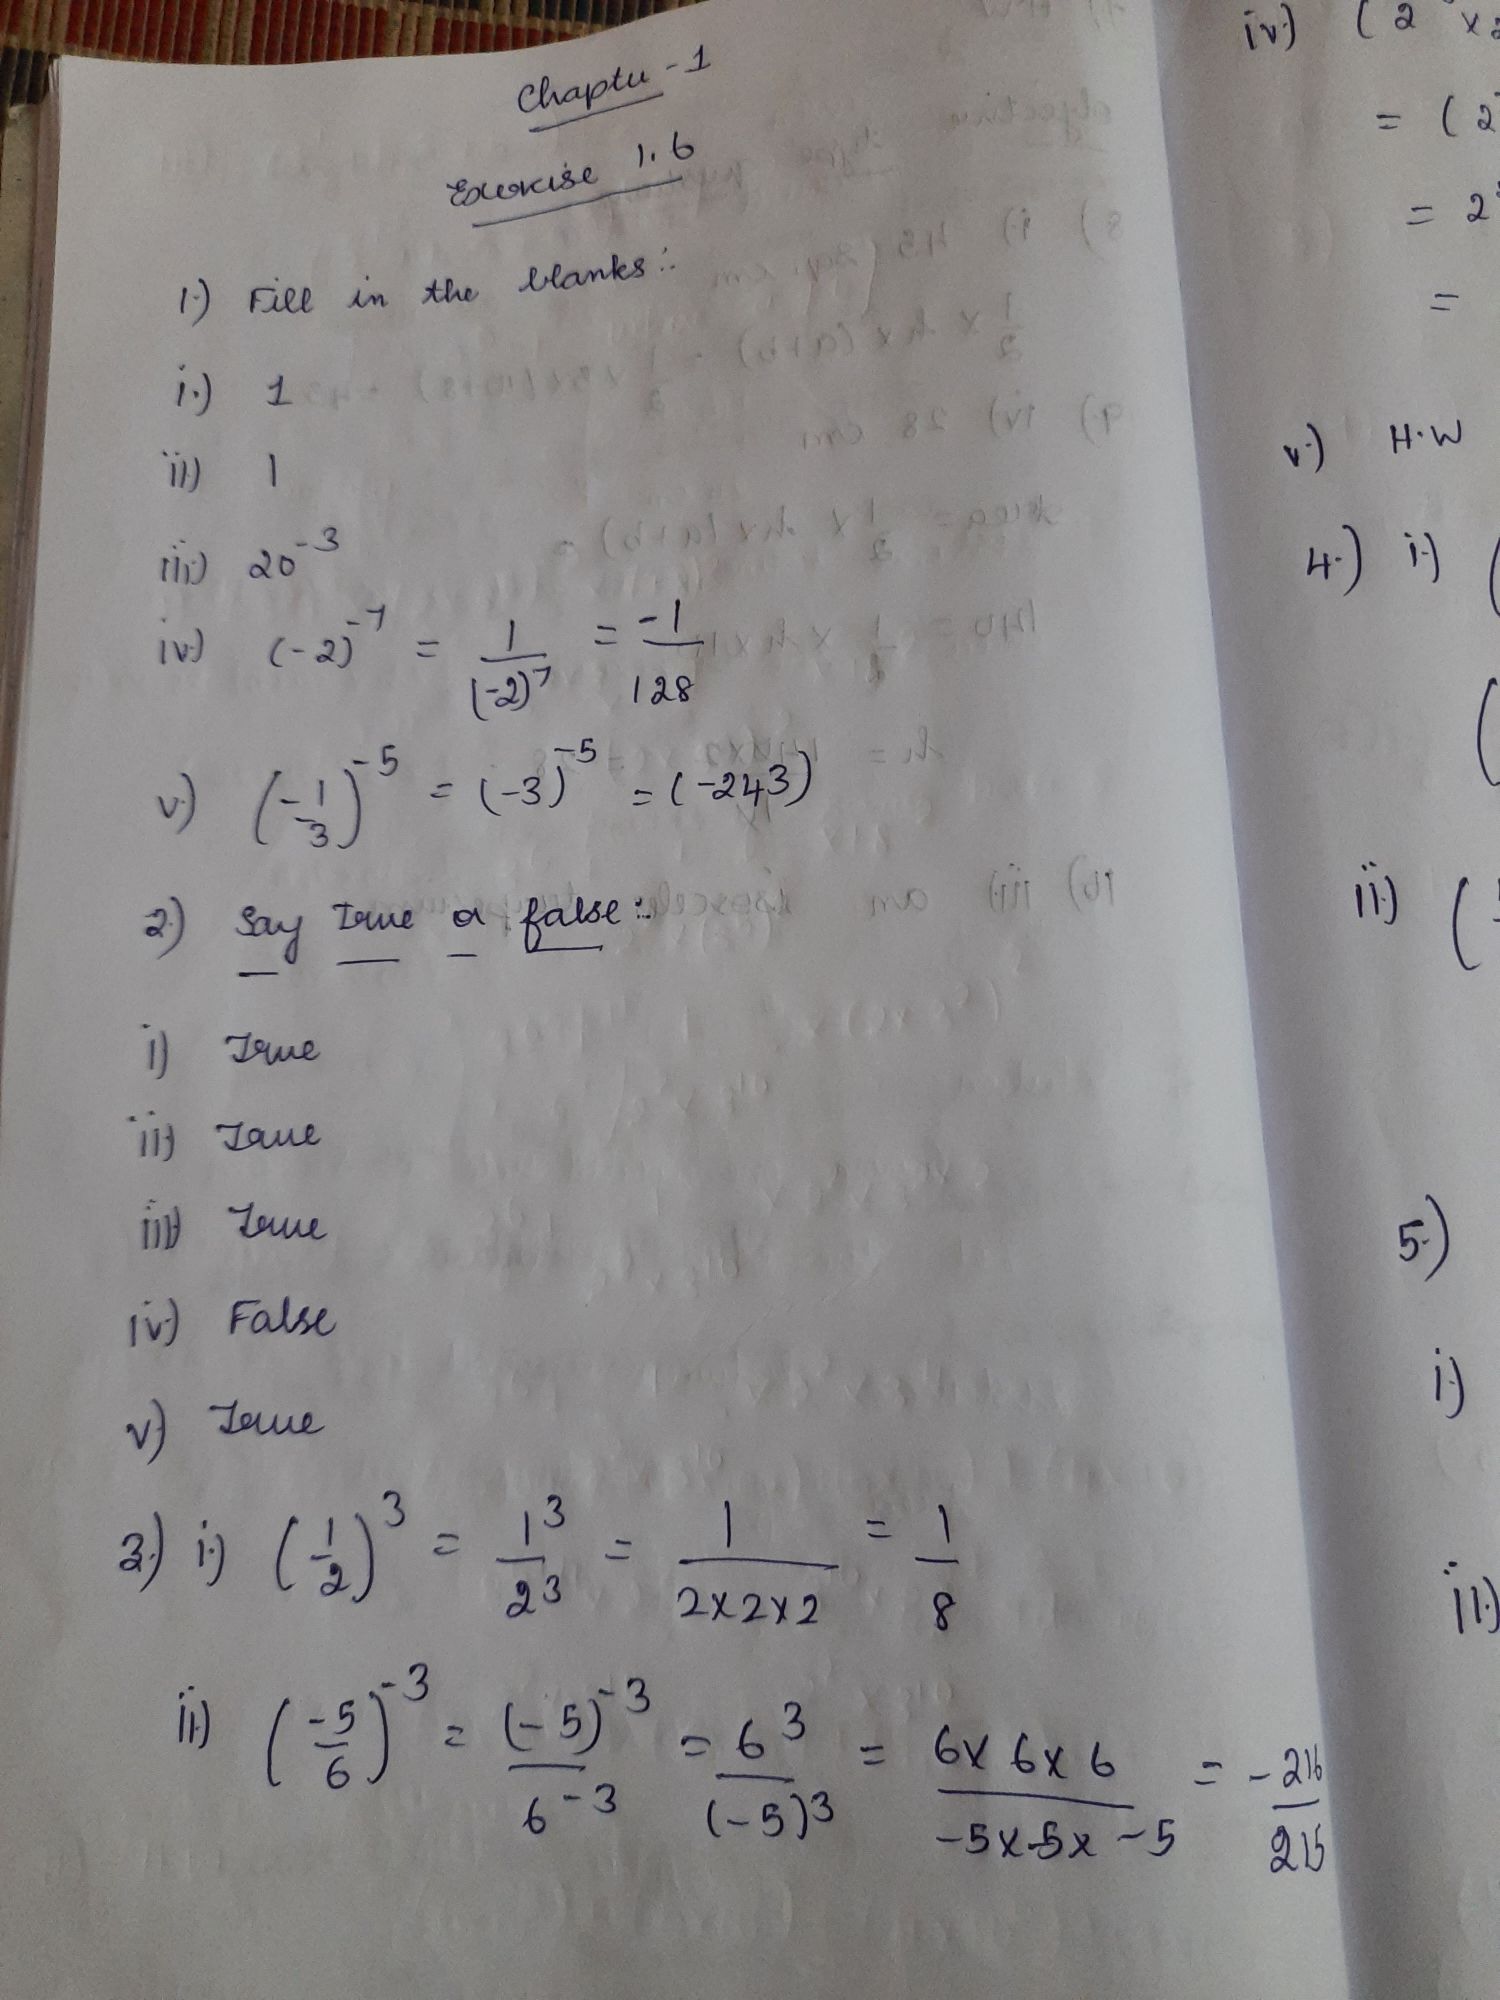 Chapter - 1
Exercise 1.6
1.) Fill in the blanks :-
i.) 1
ii) 1
iii) 20⁻³
iv) (-2)⁻⁷ = 1/(-2)⁷ = -1/128
v.) (-1/3)⁻⁵ = (-3)⁻⁵ = (-243)
2.) Say True or false :-
i) True
ii) True
iii) True
iv.) False
v.) True
3.) i.) (1/2)³ = 1³/2³ = 1/(2×2×2) = 1/8
ii.) (-5/6)⁻³ = (-5)⁻³/6⁻³ = 6³/(-5)³ = (6×6×6)/(-5×-5×-5) = -216/215
iv.) (2
= (2
= 2
=
v.) H.W
4.) i.) (
(
ii.) (
5.)
i.)
ii.)